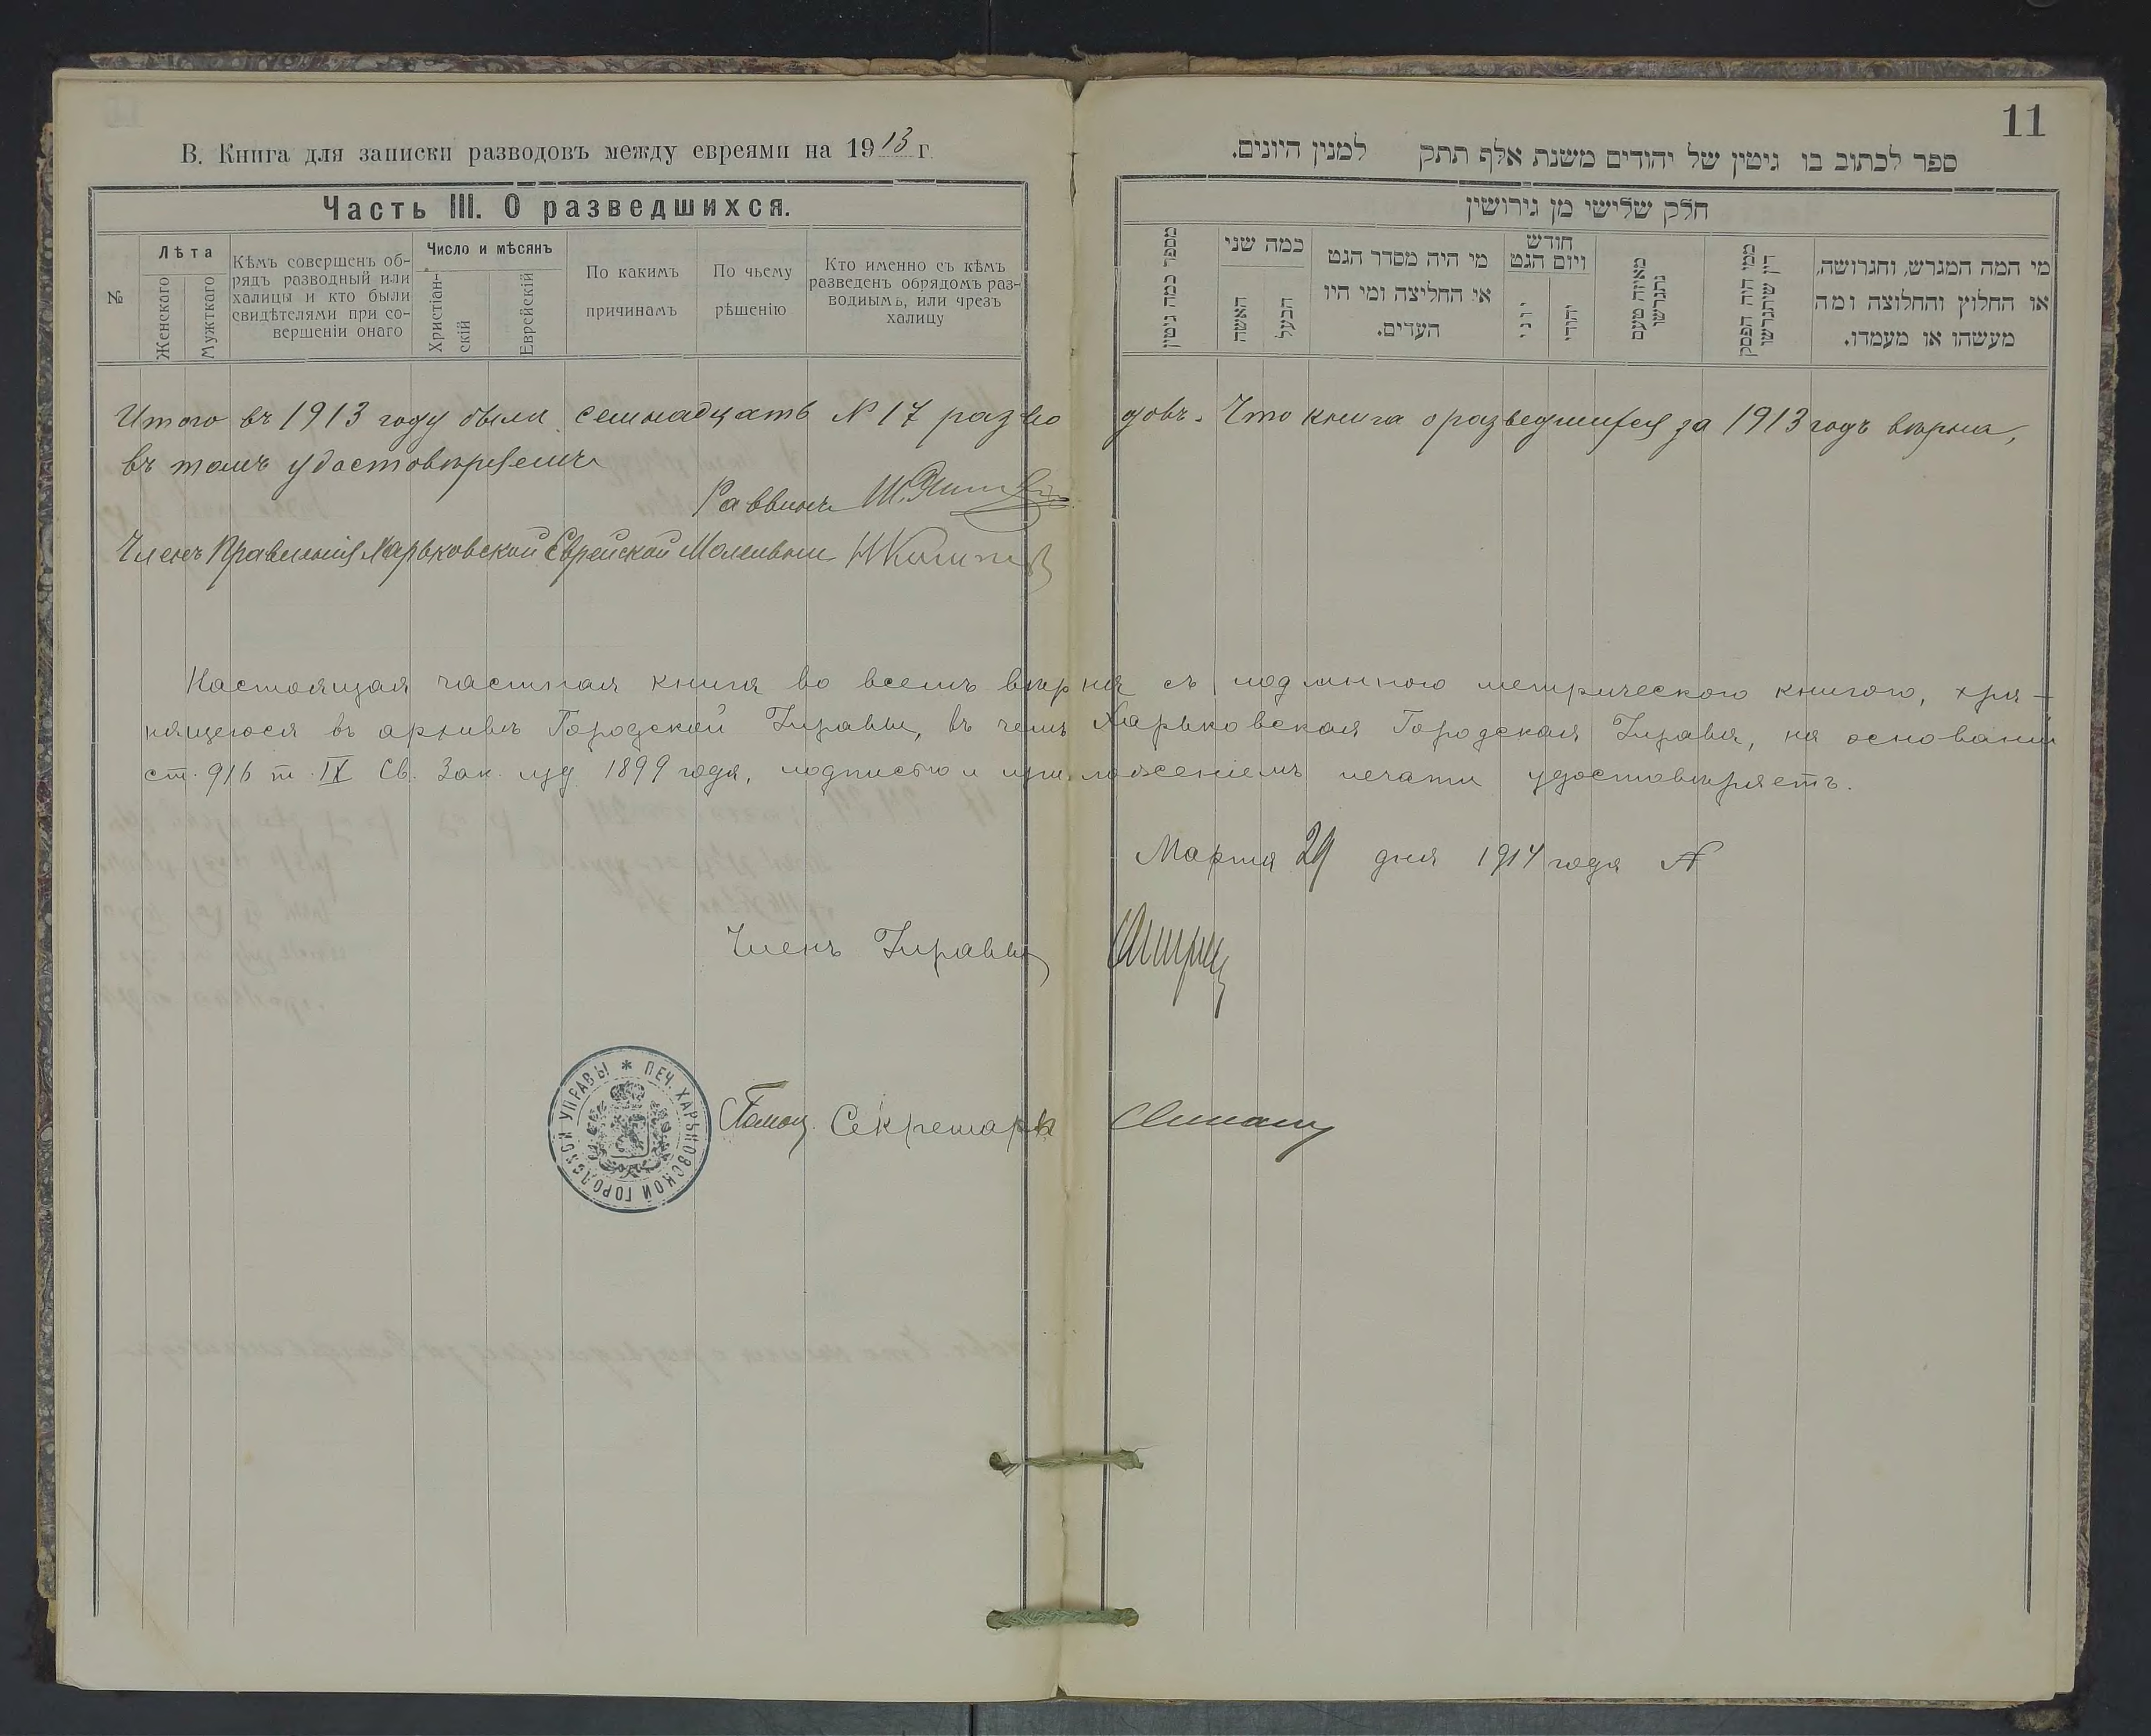 В. Книга для записки разводовъ между евреями на 1913 г.
Часть III. О разведшихся.
№
Лѣта
Женскаго
Мужткаго
Кѣмъ совершенъ об-
рядъ разводный или
халицы и кто были
свидѣтелями при со-
вершеніи онаго
Число и мѣсянъ
Христіан-
скій
Еврейскій
По какимъ
причинамъ
По чьему
рѣшенію
Кто именно съ кѣмъ
разведенъ обрядомъ раз-
воднымъ, или чрезъ
халицу
11
ספר לכתוב בו גיטין של יהודים משנת אלף תתק למנין היונים.
חלק שלישי מן גירושין
מספר כמה גיטין
כמה שני
האשה
הבעל
מי היה מסדר הגט
או החליצה ומי היו
העדים.
חודש
ויום הגט
יוני
יהודי
מאיזה טעם
נתגרשו
ממי היה הפסק
דין שיתגרשו
מי המה המגרש, והגרושה,
או החלוץ והחלוצה ומה
מעשהו או מעמדו.
Итого въ 1913 году были семнадцать № 17 разводовъ. Что книга о разведшихся за 1913 годъ вѣрна,
въ томъ удостовѣряемъ
Раввинъ
Членъ Правленія Харьковской Еврейской Молельни
Настоящая частная книга во всемъ вѣрна съ подлинною метрическою книгою, хра-
нящеюся въ архивѣ Городской Управы, въ чемъ Харьковская Городская Управа, на основаніи
ст. 916 т. IX Св. Зак. изд. 1899 года, подписью и приложеніемъ печати удостовѣряетъ.
Марта 29 дня 1914 года №
Членъ Управы
Помощ. Секретаря
ПЕЧ. ХАРЬКОВСКОЙ ГОРОДСКОЙ УПРАВЫ *